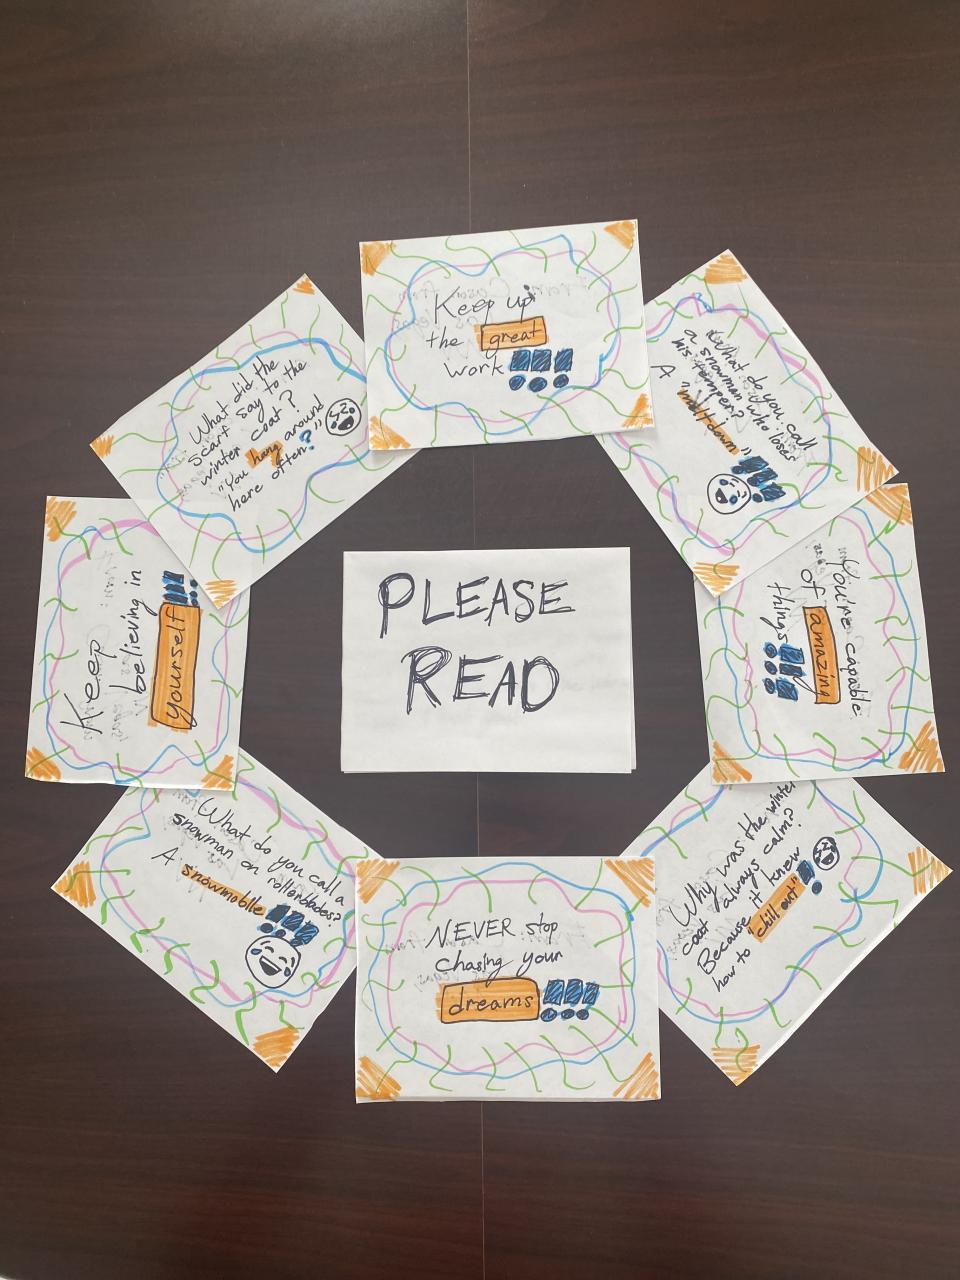 Keep up
the great
work!!!
What do you call
a snowman who loses
his temper?
A "meltdown"!!!
You're capable
of amazing
things!!!
Why was the winter
coat always calm?
Because it knew
how to "chill out"!
NEVER stop
chasing your
dreams!!!
What do you call a
snowman on rollerblades?
A snowmobile!!!
Keep
believing in
yourself!!!
What did the
scarf say to the
winter coat?
"You hang around
here often?"
PLEASE
READ